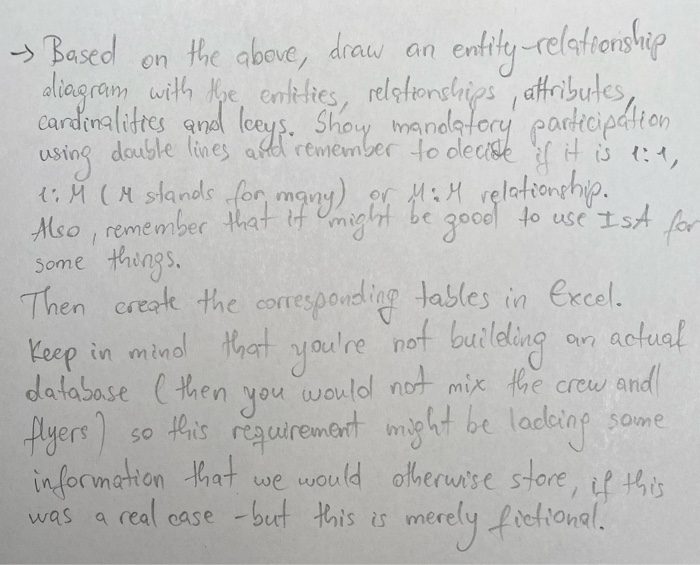 → Based on the above, draw an entity-relationship
diagram with the entities, relationships, attributes,
cardinalities and keys. Show mandatory participation
using double lines and remember to decide if it is 1:1,
1:M (M stands for many) or M:M relationship.
Also, remember that it might be good to use IsA for
some things.
Then create the corresponding tables in Excel.
Keep in mind that you're not building an actual
database (then you would not mix the crew and
flyers) so this requirement might be lacking some
information that we would otherwise store, if this
was a real case - but this is merely fictional.